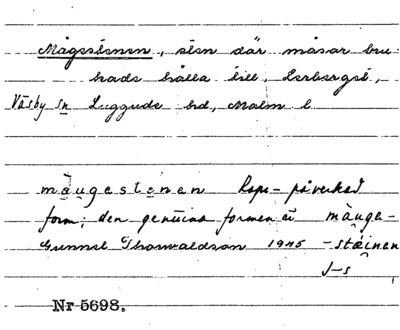 Mågestenen, sten där måsar bru-
kade hålla till, Lerbergst,
Väsby sn Luggude hd, Malm l
màugestenan Raps-påverkad
form; den genuina formen är màuga-
Gunnel Thorwaldson 1945 -stäinen
J-s
Nr 5698.